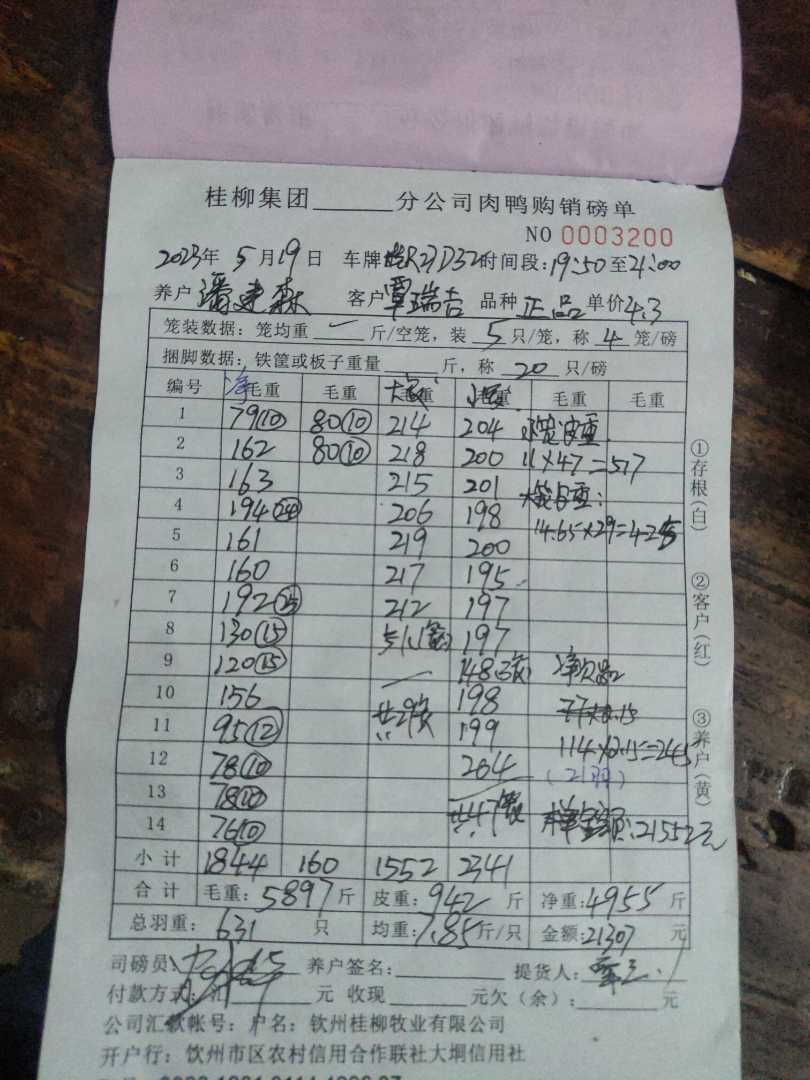 桂柳集团______分公司肉鸭购销磅单
NO 0003200
2023年 5月19日 车牌 R27D32 时间段:19:50至21:00
养户 潘建森 客户 覃瑞吉 品种 正品 单价 4.3
笼装数据：笼均重 一 斤/空笼，装 5 只/笼，称 4 笼/磅
捆脚数据：铁筐或板子重量______斤，称 20 只/磅
编号 净毛重 毛重 毛重 毛重 毛重 毛重
1 79(10) 80(10) 214 204
2 162 80(10) 218 200 11×47=517
3 163 215 201
4 194(24) 206 198 14.65×29=425
5 161 219 200
6 160 217 195
7 192 212 197
8 130(15) 51(1笼) 197
9 120(15) 148
10 156 198
11 95(12) 199 114×2.15=245
12 78(10) 204
13 78(10)
14 76(10) 21552元
小计 1844 160 1552 2341
合计 毛重:5897斤 皮重:942斤 净重:4955斤
总羽重:631只 均重:7.85斤/只 金额:21307元
司磅员: 养户签名:______ 提货人:
付款方式:汇______元 收现______元欠(余):______元
公司汇款帐号：户名：钦州桂柳牧业有限公司
开户行：钦州市区农村信用合作联社大垌信用社
①存根(白) ②客户(红) ③养户(黄)